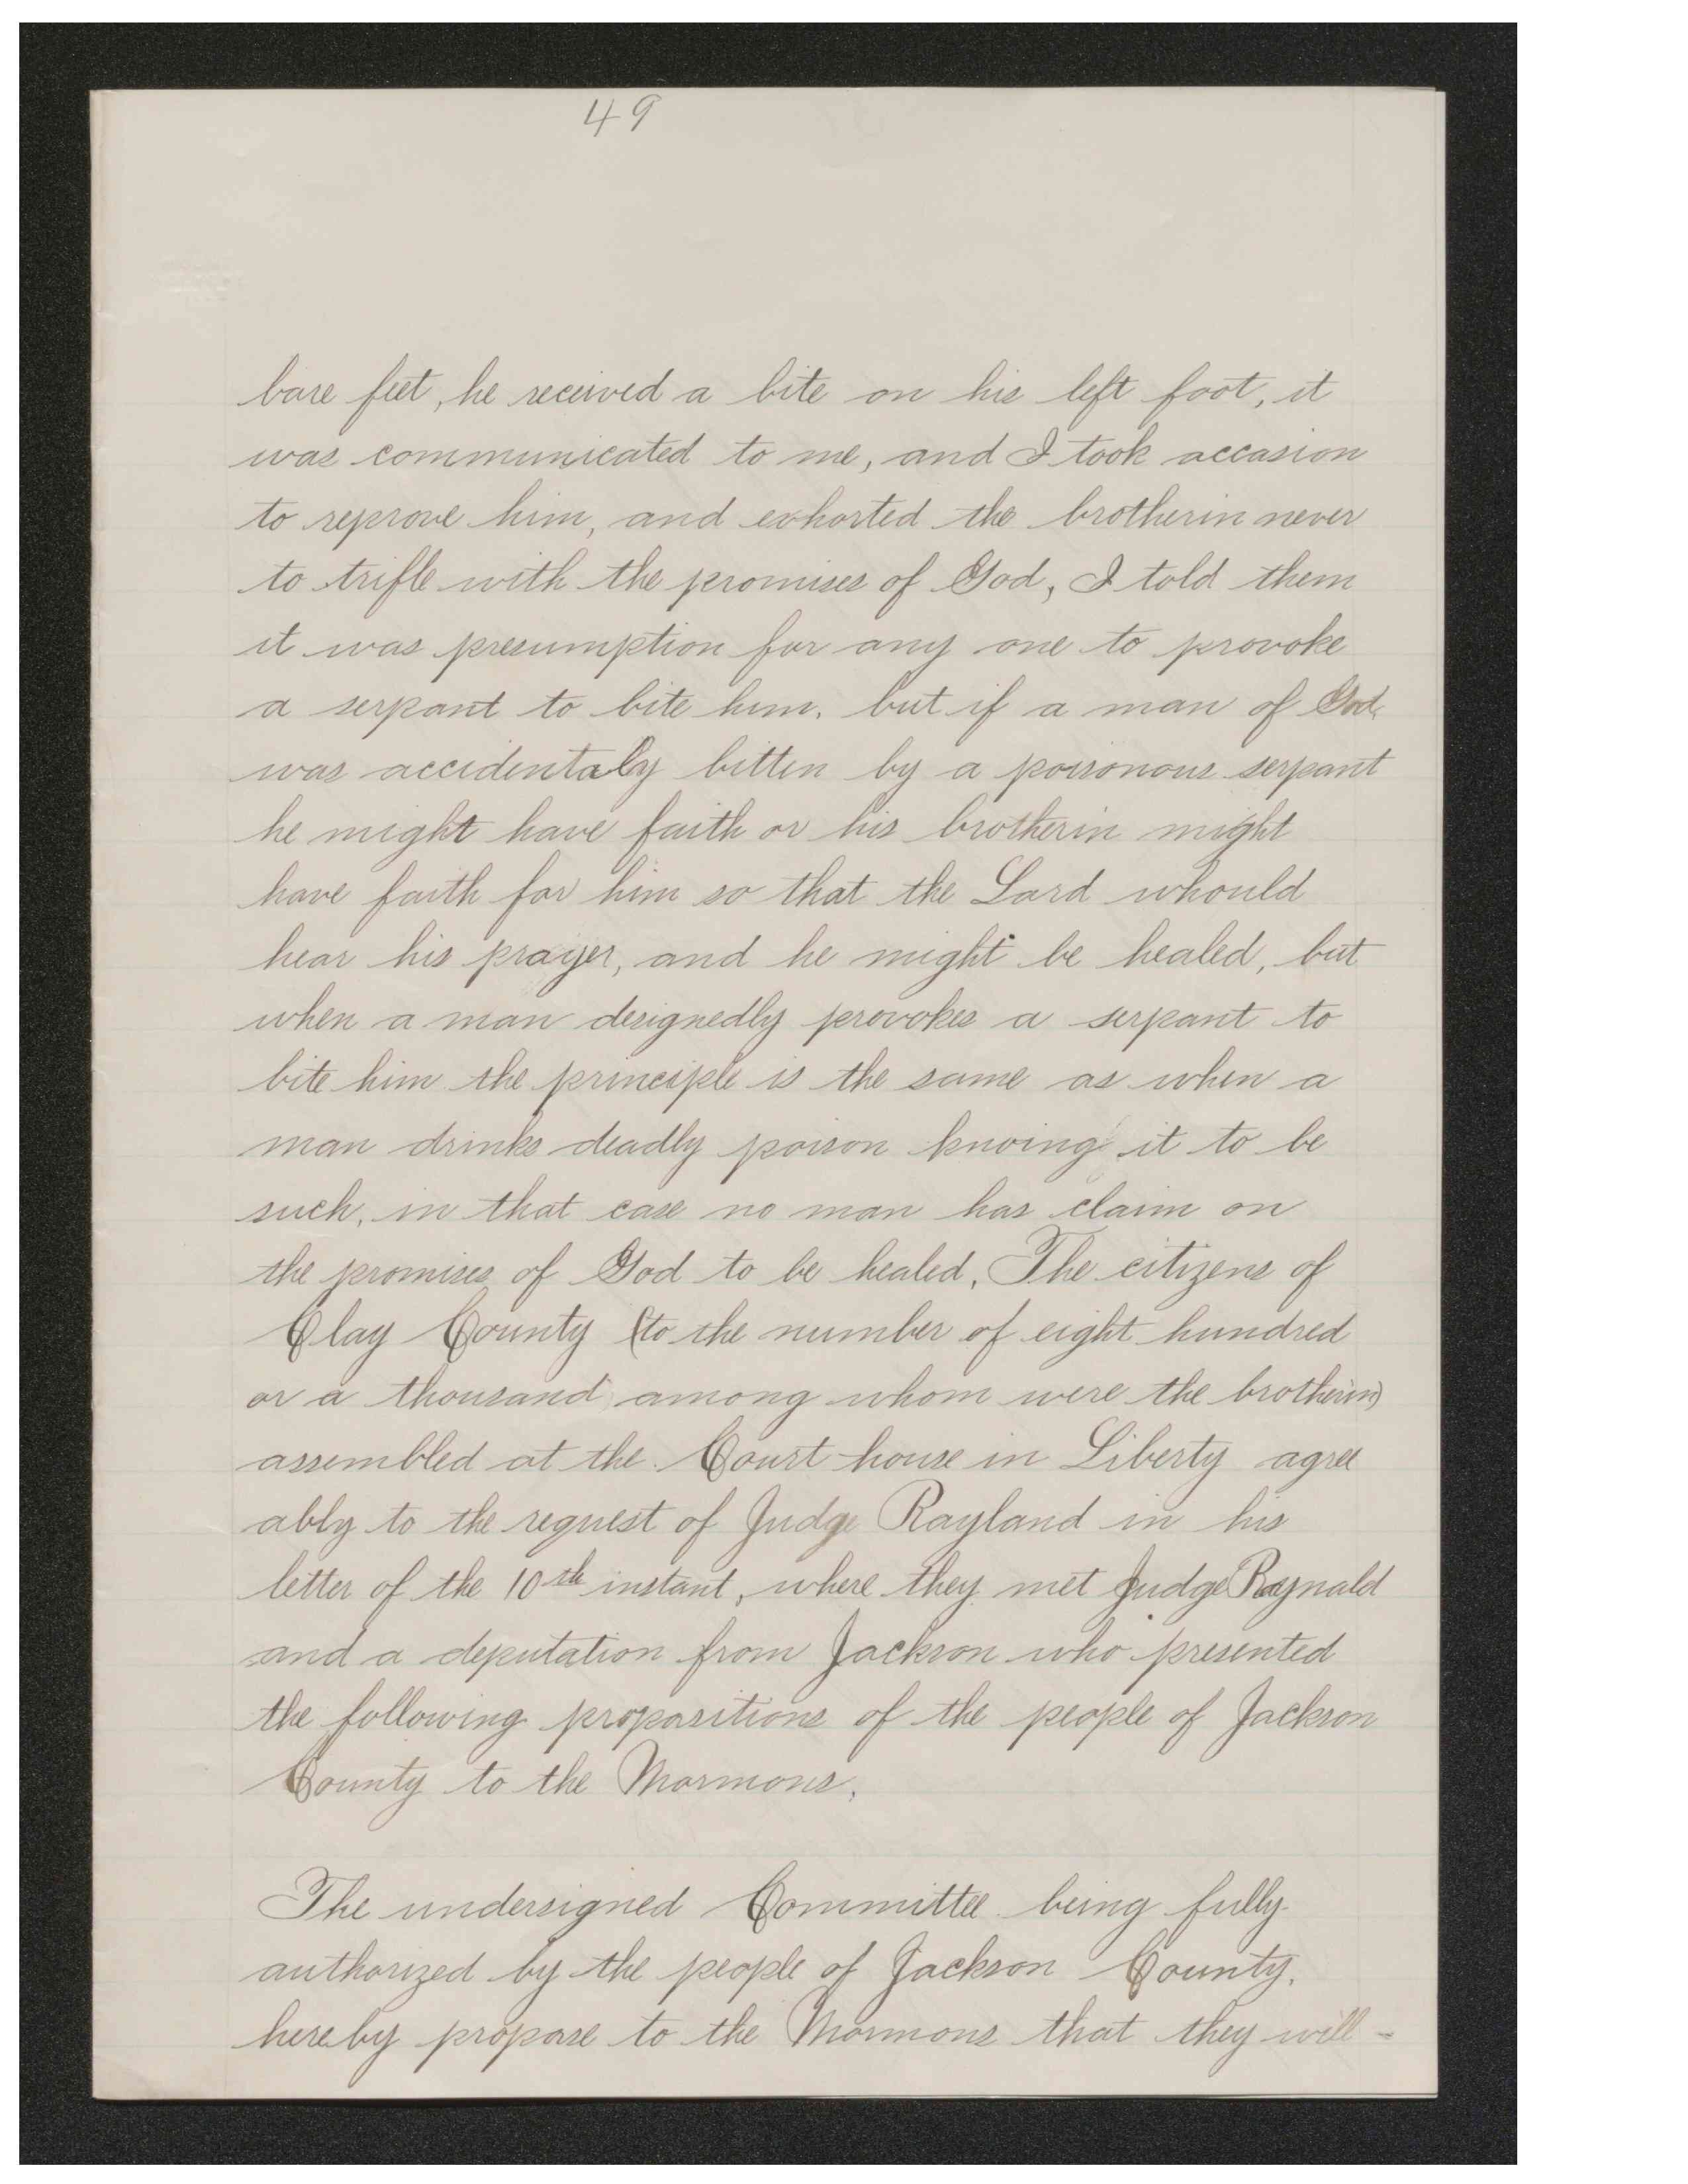 49
bare feet, he received a bite on his left foot, it
was communicated to me, and I took accasion
to reprove him, and exhorted the brotherin never
to trifle with the promises of God, I told them
it was presumption for any one to provoke
a serpant to bite him. but if a man of God
was accidentaly bitten by a poisonous serpant
he might have faith or his brotherin might
have faith for him so that the Lord whould
hear his prayer, and he might be healed, but
when a man designedly provokes a serpant to
bite him the principle is the same as when a
man drinks deadly poison knoing it to be
such, in that case no man has claim on
the promises of God to be healed, The citizens of
Clay County (to the number of eight hundred
or a thousand among whom were the brotherin)
assembled at the Court house in Liberty agree
ably to the request of Judge Rayland in his
letter of the 10th instant, where they met Judge Raynald
and a deputation from Jackson who presented
the following propositions of the people of Jackson
County to the Mormons.
The undersigned Committee being fully
authorized by the people of Jackson County,
hereby propose to the Mormons that they will -